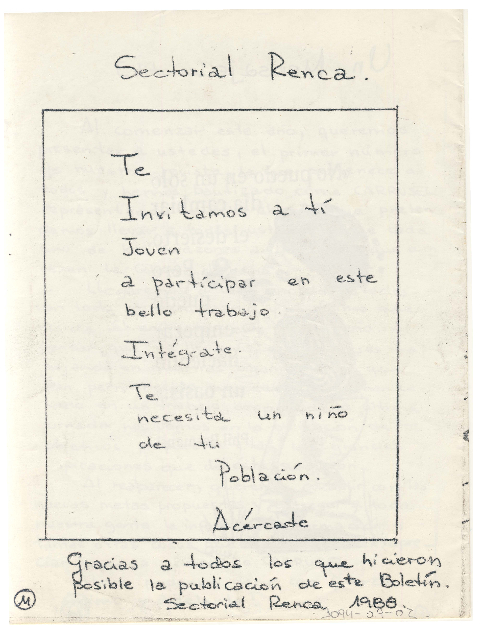 Sectorial Renca.
Te
Invitamos a tí
Joven
a partícipar en este
bello trabajo.
Intégrate.
Te
necesita un niño
de tu
Población.
Acércaste
Gracias a todos los que hicieron
posible la publicación de este Boletín.
Sectorial Renca 1988.
M